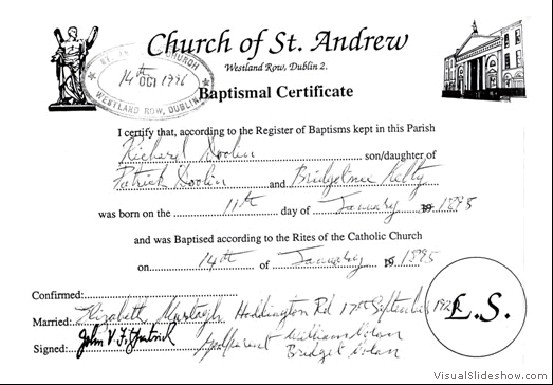 Church of St. Andrew
Westland Row, Dublin 2.
ST. ANDREW'S CHURCH
14th OCT 1996
WESTLAND ROW, DUBLIN
Baptismal Certificate
I certify that, according to the Register of Baptisms kept in this Parish
Richard Doolin son/daughter of
Patrick Doolin and Kelly
was born on the 11th day of January 1895
and was Baptised according to the Rites of the Catholic Church
on 14th of January 19 1895
Confirmed:
Married: Elizabeth Murtagh Haddington Rd 17th September
L.S.
Signed: John V. Fitzpatrick Godparent William Nolan
Bridget Nolan
VisualSlideshow.com